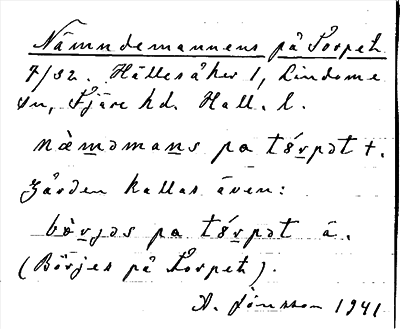 Nämndemannens på Torpet
7/32. Hällesåker 1, Lindome
sn, Fjäre hd. Hall. l.
näməmans pa tórpət +.
Gården kallas även:
bö̀rjəs pa tórpət å.
(Börjes på Torpet).
A. Jönsson 1941